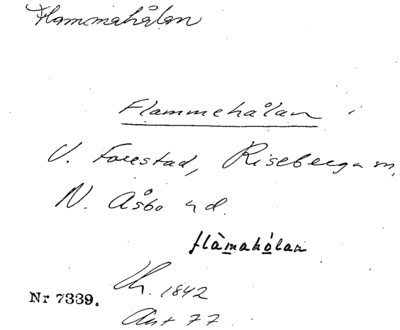 Flammahålan
Flammehålan i
V. Forestad, Riseberga sn,
N. Åsbo hd.
flàmahólan
Nr 7339.
Th. 1842
Ant 77